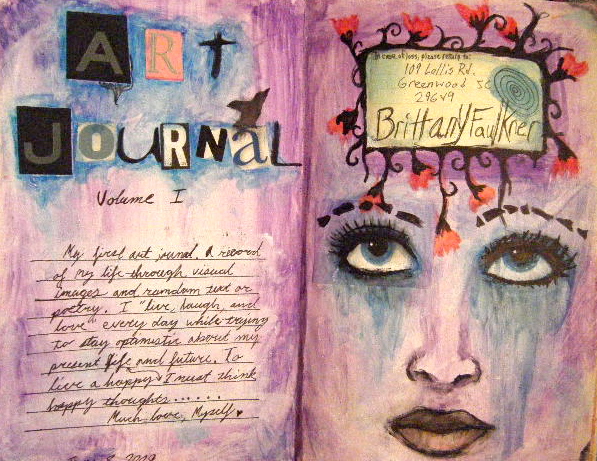 ART
JOURNAL
Volume I
My first art jounal. A record
of my life through visual
images and ramdom text or
poetry. I "live, laugh, and
love" every day while trying
to stay optimistic about my
present life and future. To
live a happy I must think
happy thoughts......
Much love, Myself
In case of loss, please return to:
109 Lollis Rd.
Greenwood SC
29649
Brittany Faulkner